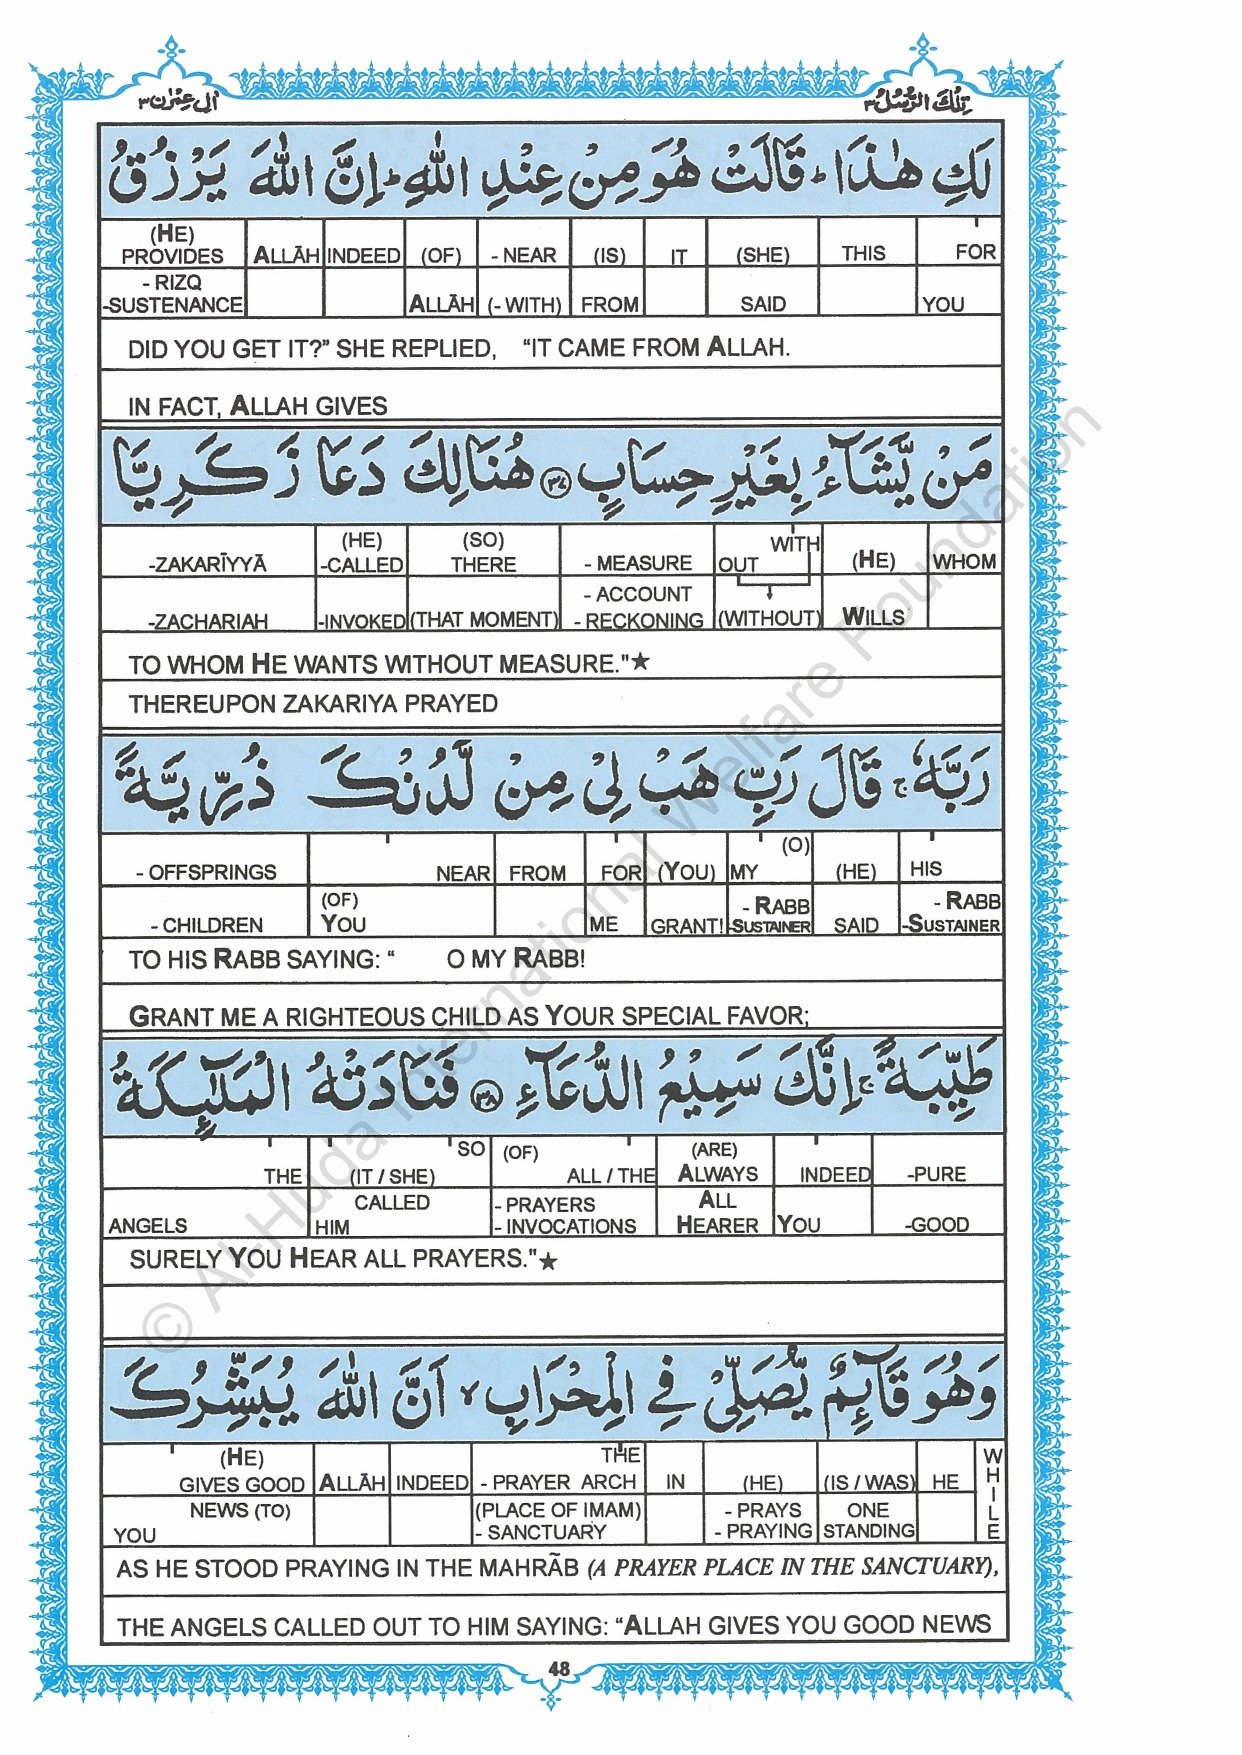 اٰل عِمْرٰن ٣
تِلْكَ الرُّسُلُ ٣
لَكِ هٰذَا ؕ قَالَتْ هُوَ مِنْ عِنْدِ اللّٰهِ ؕ اِنَّ اللّٰهَ يَرْزُقُ
(HE) PROVIDES - RIZQ -SUSTENANCE | ALLĀH | INDEED | (OF) ALLĀH | - NEAR (- WITH) | (IS) FROM | IT | (SHE) SAID | THIS | FOR YOU
DID YOU GET IT?” SHE REPLIED, “IT CAME FROM ALLAH.
IN FACT, ALLAH GIVES
مَنْ يَّشَآءُ بِغَيْرِ حِسَابٍ ﴿٣٧﴾ هُنَالِكَ دَعَا زَكَرِيَّا
-ZAKARĪYYĀ -ZACHARIAH | (HE) -CALLED -INVOKED | (SO) THERE (THAT MOMENT) | - MEASURE - ACCOUNT - RECKONING | WITH OUT (WITHOUT) | (HE) WILLS | WHOM
TO WHOM HE WANTS WITHOUT MEASURE."★
THEREUPON ZAKARIYA PRAYED
رَبَّهٗ ۚ قَالَ رَبِّ هَبْ لِىْ مِنْ لَّدُنْكَ ذُرِّيَّةً
- OFFSPRINGS - CHILDREN | NEAR (OF) YOU | FROM | FOR ME | (YOU) GRANT! | (O) MY - RABB -SUSTAINER | (HE) SAID | HIS - RABB -SUSTAINER
TO HIS RABB SAYING: “ O MY RABB!
GRANT ME A RIGHTEOUS CHILD AS YOUR SPECIAL FAVOR;
طَيِّبَةً ۚ اِنَّكَ سَمِيْعُ الدُّعَآءِ ﴿٣٨﴾ فَنَادَتْهُ الْمَلٰٓئِكَةُ
THE ANGELS | SO (IT / SHE) CALLED HIM | (OF) ALL / THE - PRAYERS - INVOCATIONS | (ARE) ALWAYS ALL HEARER | INDEED YOU | -PURE -GOOD
SURELY YOU HEAR ALL PRAYERS."★
وَهُوَ قَآئِمٌ يُّصَلِّىْ فِى الْمِحْرَابِ ۙ اَنَّ اللّٰهَ يُبَشِّرُكَ
(HE) GIVES GOOD NEWS (TO) YOU | ALLĀH | INDEED | THE - PRAYER ARCH (PLACE OF IMAM) - SANCTUARY | IN | (HE) - PRAYS - PRAYING | (IS / WAS) ONE STANDING | HE | WHILE
AS HE STOOD PRAYING IN THE MAHRĀB (A PRAYER PLACE IN THE SANCTUARY),
THE ANGELS CALLED OUT TO HIM SAYING: “ALLAH GIVES YOU GOOD NEWS
48
© Al-Huda International Welfare Foundation